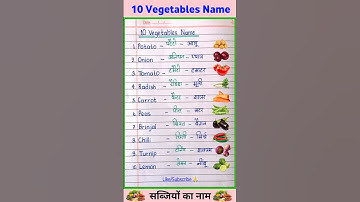 10 Vegetables Name
Date
10 Vegetables Name
1. Potato - पोटैटो - आलू
2. Onion - अनियन - प्याज
3. Tomato - टमैटो - टमाटर
4. Radish - रैडिश - मूली
5. Carrot - कैरट - गाजर
6. Peas - पीस - मटर
7. Brinjal - ब्रिंजल - बैंगन
8. Chili - चिली - मिर्च
9. Turnip - टर्निप - शलजम
10. Lemon - लेमन - नींबू
Like/Subscribe
सब्जियों का नाम